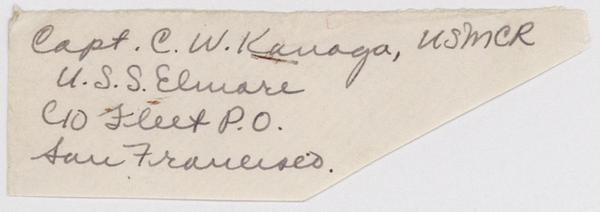 Capt. C. W. Kanaga, USMCR
U.S.S. Elmore
C/O Fleet P.O.
San Francisco.